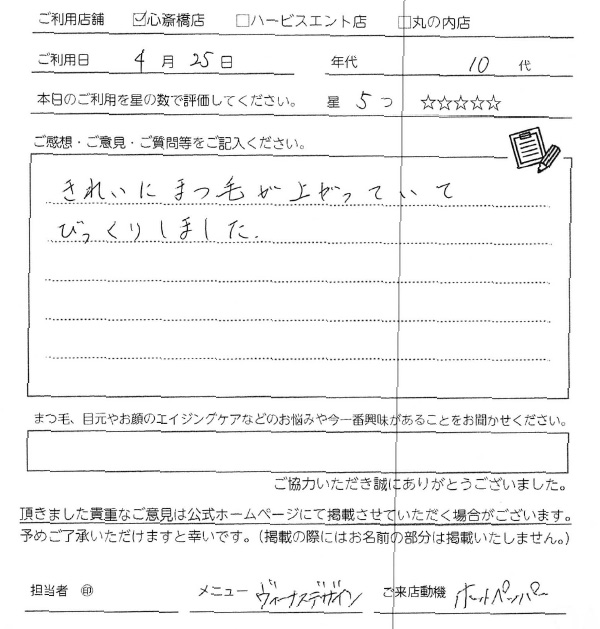 ご利用店舗 ☑心斎橋店 □ハービスエント店 □丸の内店
ご利用日 4 月 25 日 年代 10 代
本日のご利用を星の数で評価してください。 星 5 つ ☆☆☆☆☆
ご感想・ご意見・ご質問等をご記入ください。
きれいにまつ毛が上がっていて
びっくりしました.
まつ毛、目元やお顔のエイジングケアなどのお悩みや今一番興味があることをお聞かせください。
ご協力いただき誠にありがとうございました。
頂きました貴重なご意見は公式ホームページにて掲載させていただく場合がございます。
予めご了承いただけますと幸いです。(掲載の際にはお名前の部分は掲載いたしません。)
担当者 ㊞ メニュー ヴィーナスデザイン ご来店動機 ホットペッパー